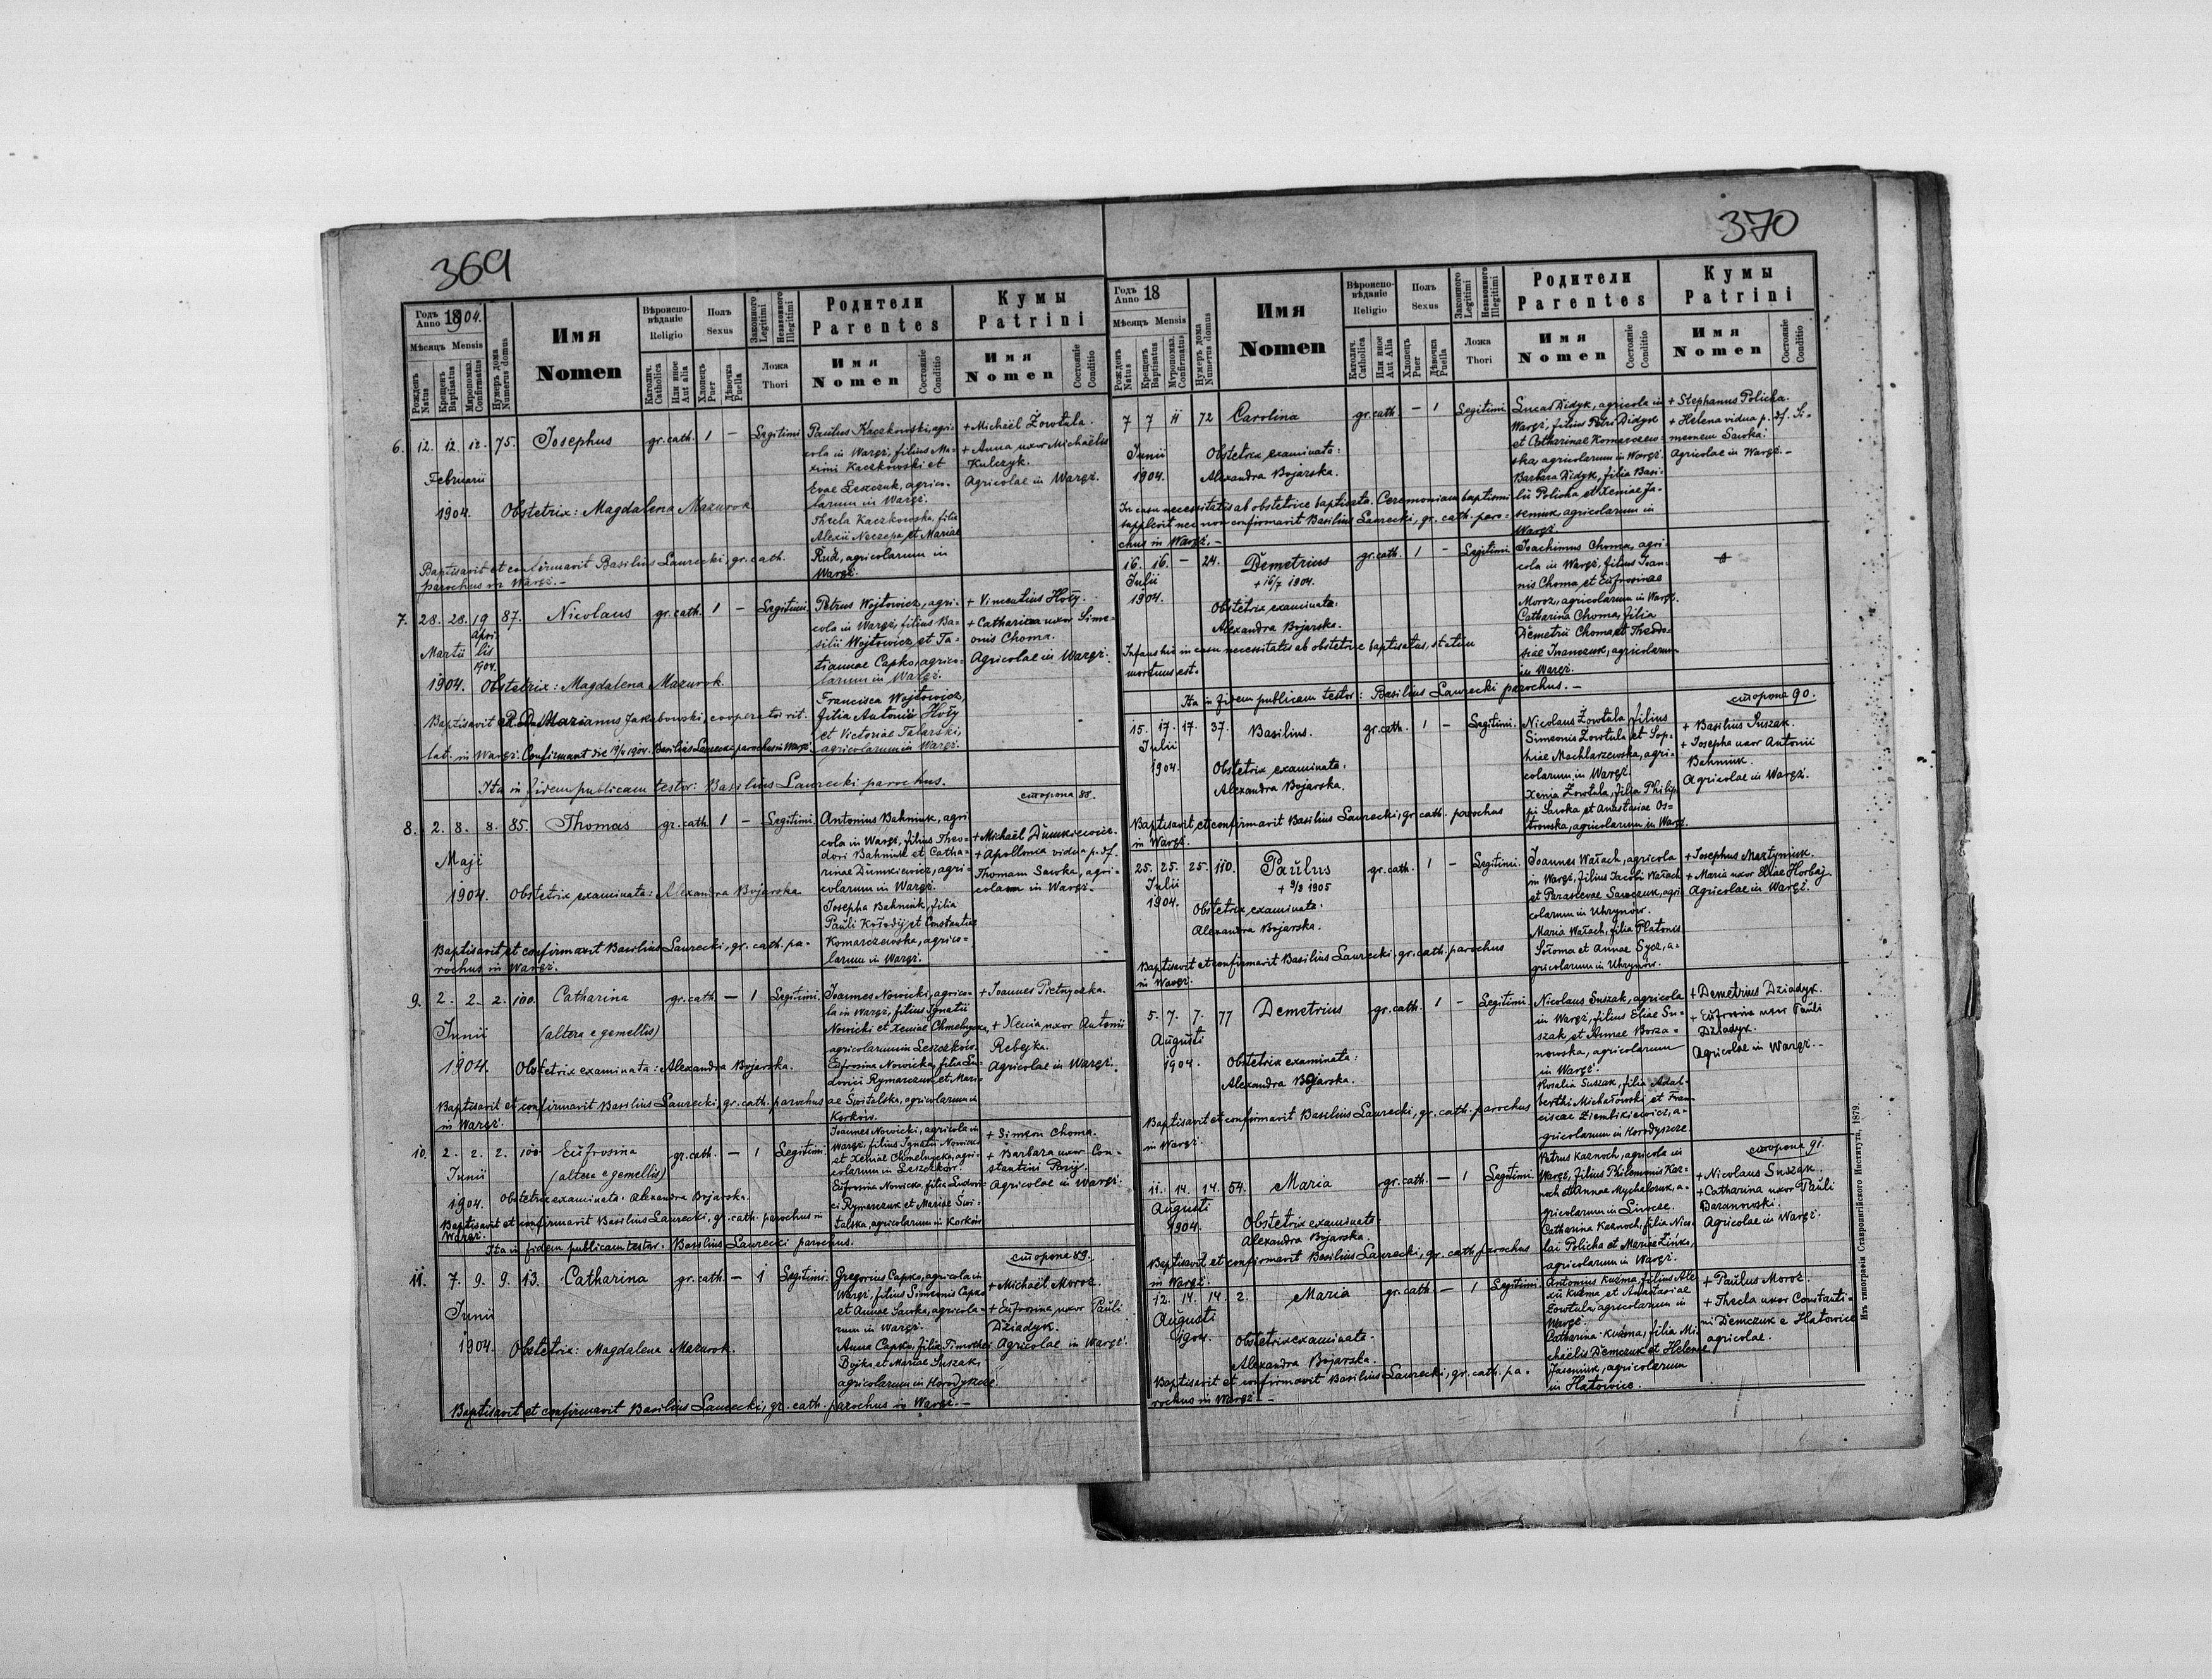 369
Годъ Anno 1904.
Мѣсяцъ Mensis
Рожденъ Natus
Крещенъ Baptisatus
Миропомаз. Confirmatus
Нумеръ дома Numerus domus
Имя
Nomen
Вѣроиспо-
вѣданіе
Religio
Католич. Catholica
Или иное Aut alia
Полъ
Sexus
Хлопець Puer
Дѣвочка Puella
Законного Legitimi
Незаконного Illegitimi
Ложа
Thori
Родители
Parentes
Имя
Nomen
Состояніе Conditio
Кумы
Patrini
Имя
Nomen
Состояніе Conditio
6. 12. 12. 12. 75. Josephus gr. cath. 1 – Legitimi
Februarii
1904. Obstetrix: Magdalena Mazurok
Baptisavit et confirmavit Basilius Laurecki, gr. cath.
parochus in Waręż. –
Paulus Kaczkowski, agri-
cola in Waręż, filius Ma-
ximi Kaczkowski et
Evae Leszczuk, agrico-
larum in Waręż.
Thecla Kaczkowska, filia
Alexii Neczepa et Mariae
Rud, agricolarum in
Waręż.
+ Michaël Żowtala.
+ Anna uxor Michaëlis
Kulczyk.
Agricolae in Waręż.
7. 28. 28. 19 87. Nicolaus gr. cath. 1 – Legitimi.
Martii Aprilis
1904.
1904. Obstetrix: Magdalena Mazurok.
Baptisavit R. D. Marianus Jakubowski, cooperator rit.
lat. in Waręż. Confirmavit die 19/4 1904. Basilius Laurecki parochus in Waręż.
Petrus Wojtowicz, agri-
cola in Waręż, filius Ba-
silii Wojtowicz et Ta-
tiannae Capko, agrico-
larum in Waręż.
Francisca Wojtowicz,
filia Antonii Hoły
et Victoriae Tatarski,
agricolarum in Waręż.
+ Vincentius Hoły.
+ Catharina uxor Sime-
onis Choma.
Agricolae in Waręż.
Ita in fidem publicam testor: Basilius Laurecki parochus.
сторона 88.
8. 2. 8. 8. 85. Thomas gr. cath 1 – Legitimi.
Maji
1904. Obstetrix examinata: Alexandra Bojarska
Baptisavit et confirmavit Basilius Laurecki, gr. cath. pa-
rochus in Waręż.
Antonius Bahniuk, agri
cola in Waręż, filius Theo-
dori Bahniuk et Catha-
rinae Dumkiewicz, agri-
colarum in Waręż.
Josepha Bahniuk, filia
Pauli Kołodij et Constantiae
Komarczewska, agrico-
larum in Waręż.
+ Michaël Dumkiewicz.
+ Apollonia vidua p. df.
Thomam Sawka, agri-
colarum in Waręż.
9. 2. 2. 2. 100. Catharina gr. cath. – 1 Legitimi.
Junii (altera e gemellis)
1904. Obstetrix examinata: Alexandra Bojarska.
Baptisavit et confirmavit Basilius Laurecki, gr. cath. parochus
in Waręż.
Joannes Nowicki, agrico-
la in Waręż, filius Ignatii
Nowicki et Xeniae Chmelnycka,
agricolarum in Leszczków.
Eufrosina Nowicka, filia Lu-
dovici Rymarczuk et Mari-
ae Świtalska, agricolarum in
Korków.
+ Joannes Pietnyczka.
+ Xenia uxor Antonii
Rebejka.
Agricolae in Waręż.
10. 2. 2. 2. 100. Eufrosina gr. cath. – 1 Legitimi.
Junii (altera e gemellis)
1904. Obstetrix examinata: Alexandra Bojarska.
Baptisavit et confirmavit Basilius Laurecki, gr. cath. parochus in
Waręż.
Joannes Nowicki, agricola in
Waręż, filius Ignatii Nowicki
et Xeniae Chmelnycka, agri-
colarum in Leszczków.
Eufrosina Nowicka, filia Ludovi-
ci Rymarczuk et Mariae Świ-
talska, agricolarum in Korków
+ Simeon Choma.
+ Barbara uxor Con-
stantini
Agricolae in Waręż.
Ita in fidem publicam testor. Basilius Laurecki parochus.
сторона 89.
11. 7. 9. 9. 13. Catharina gr. cath. – 1 Legitimi.
Junii
1904. Obstetrix: Magdalena Mazurok.
Baptisavit et confirmavit Basilius Laurecki, gr. cath. parochus in Waręż. –
Gregorius Capko, agricola in
Waręż, filius Simeonis Capko
et Annae Sawka, agricola-
rum in Waręż.
Anna Capko, filia Timothei
Bojko et Mariae Suszak,
agricolarum in Horodyszcze.
+ Michaël Moroz.
+ Eufrosina uxor Pauli
Dziadyk.
Agricolae in Waręż.
370
Годъ Anno 18
Мѣсяцъ Mensis
Рожденъ Natus
Крещенъ Baptisatus
Мѵропомаз. Confirmatus
Нумеръ дома Numerus domus
Имя
Nomen
Вѣроиспо-
вѣданіе
Religio
Католич. Catholica
Или иное Aut Alia
Полъ
Sexus
Хлопець Puer
Дѣвочка Puella
Законного Legitimi
Незаконного Illegitimi
Ложа
Thori
Родители
Parentes
Имя
Nomen
Состояніе Conditio
Кумы
Patrini
Имя
Nomen
Состояніе Conditio
7 7 11 72 Carolina gr. cath. – 1 Legitimi
Junii Obstetrix examinata:
1904. Alexandra Bojarska.
In casu necessitatis ab obstetrice baptisata. Ceremoniam baptismi
supplevit nec non confirmavit Basilius Laurecki, gr. cath. paro-
chus in Waręż. –
Lucas Didyk, agricola in
Waręż, filius Petri Didyk
et Catharinae Komarczew-
ska, agricolarum in Waręż.
Barbara Didyk, filia Basi-
lii Policha et Xeniae Ja-
seniuk, agricolarum in
Waręż
+ Stephanus Policha.
+ Helena vidua p. df. Si-
meonem Sawka.
Agricolae in Waręż. –
16. 16. – 24. Demetrius gr. cath. 1 – Legitimi
Julii + 16/7 1904.
1904. Obstetrix examinata:
Alexandra Bojarska.
Infans hic in casu necessitatis ab obstetrice baptisatus, statim
mortuus est.
Joachimus Choma, agri-
cola in Waręż, filius Joan-
nis Choma et Eufrosinae
Moroz, agricolarum in Waręż.
Catharina Choma, filia
Demetrii Choma et Theodo-
siae Iwanczuk, agricolarum
in Waręż.
Ita in fidem publicam testor: Basilius Laurecki parochus. –
сторона 90.
15. 17. 17. 37. Basilius. gr. cath. 1 – Legitimi.
Julii
1904. Obstetrix examinata:
Alexandra Bojarska.
Baptisavit et confirmavit Basilius Laurecki, gr. cath. parochus
in Waręż.
Nicolaus Żowtala, filius
Simeonis Żowtala et Sop-
hiae Machlarzewska, agri-
colarum in Waręż.
Xenia Żowtala, filia Philip-
pi Sawka et Anastasiae Os-
trowska, agricolarum in Waręż.
+ Basilius Suszak.
+ Josepha uxor Antonii
Bahniuk.
Agricolae in Waręż.
25. 25. 25. 110. Paulus gr. cath. 1 – Legitimi.
Julii + 9/3 1905
1904. Obstetrix examinata:
Alexandra Bojarska.
Baptisavit et confirmavit Basilius Laurecki, gr. cath. parochus
in Waręż.
Joannes Wałach, agricola
in Waręż, filius Jacobi Wałach
et Parascevae Sawczuk, agri-
colarum in Uhrynów.
Maria Wałach, filia Platonis
Sołoma et Annae Sycz, a-
gricolarum in Uhrynów.
+ Josephus Martyniuk.
+ Maria uxor Eliae Horbaj
Agricolae in Waręż.
5. 7. 7. 77 Demetrius gr. cath. 1 – Legitimi.
Augusti
1904. Obstetrix examinata:
Alexandra Bojarska.
Baptisavit et confirmavit Basilius Laurecki, gr. cath. parochus
in Waręż.
Nicolaus Suszak, agricola
in Waręż, filius Eliae Su-
szak et Annae Borza-
nowska, agricolarum
in Waręż.
Rosalia Suszak, filia Adal-
berthi Michałowski et Fran-
ciscae Ziembikiewicz, a-
gricolarum in Horodyszcze
+ Demetrius Dziadyk.
+ Eufrosina uxor Pauli
Dziadyk.
Agricolae in Waręż. –
сторона 91.
11. 14. 14. 54. Maria gr. cath. – 1 Legitimi.
Augusti
1904. Obstetrix examinata:
Alexandra Bojarska.
Baptisavit et confirmavit Basilius Laurecki, gr. cath. parochus
in Waręż.
Petrus Karnoch, agricola in
Waręż, filius Philemonis Kar-
noch et Annae Mychalczuk, a-
gricolarum in Liwcze.
Catharina Karnoch, filia Nico-
lai Policha et Mariae Łińko,
agricolarum in Waręż.
+ Nicolaus Suszak.
+ Catharina uxor Pauli
Baranowski.
Agricolae in Waręż.
12. 14. 14. 2. Maria gr. cath – 1 Legitimi.
Augusti
1904. Obstetrix examinata:
Alexandra Bojarska.
Baptisavit et confirmavit Basilius Laurecki, gr. cath. pa-
rochus in Waręż. –
Antonius Kuźma, filius Ale-
xii Kuźma et Anastasiae
Żowtala, agricolarum in
Waręż.
Catharina Kuźma, filia Mi-
chaëlis Demczuk et Helenae
Jaseniuk, agricolarum
in Hatowice.
+ Paulus Moroz.
+ Thecla uxor Constanti-
ni Demczuk e Hatowice
agricolae.
Изъ типографіи Ставропигійского Института, 1879.